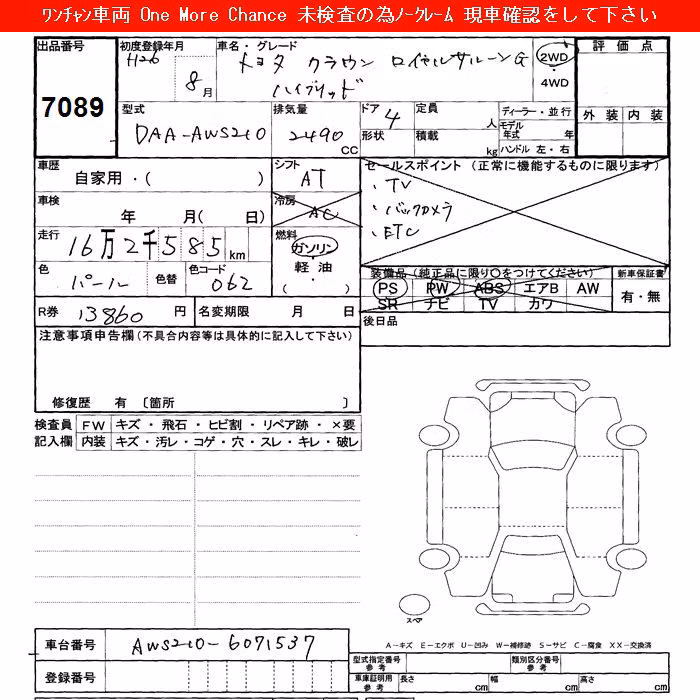 ﾜﾝﾁｬﾝ車両 One More Chance 未検査の為ﾉｰｸﾚｰﾑ 現車確認をして下さい
出品番号 7089
初度登録年月 H26 8月
車名・グレード トヨタ クラウン ロイヤルサルーンG ハイブリッド
2WD ・ 4WD
評価点
外装 内装
型式 DAA-AWS210
排気量 2490 CC
ドア 4 形状
定員 人
積載 kg
ディーラー・並行
モデル年式 年
ハンドル 左・右
車歴 自家用・( )
シフト AT
セールスポイント (正常に機能するものに限ります)
・TV
・バックカメラ
・ETC
車検 年 月( 日)
冷房 AC
走行 16万2千585km
燃料 ガソリン・軽油・( )
色 パール 色替
色コード 062
装備品 (純正品に限り○をつけてください)
PS PW ABS エアB AW
SR ナビ TV カワ
新車保証書 有・無
R券 13860 円
名変期限 月 日
後日品
注意事項申告欄 (不具合内容等は具体的に記入して下さい)
修復歴 有 〔箇所 〕
検査員記入欄
FW キズ・飛石・ヒビ割・リペア跡・×要
内装 キズ・汚レ・コゲ・穴・スレ・キレ・破レ
スペア
車台番号 AWS210-6071537
登録番号
A－キズ E－エクボ U－凹み W－補修跡 S－サビ C－腐食 XX－交換済
型式指定番号 参考
類別区分番号 参考
車庫証明用 参考 長さ cm 幅 cm 高さ cm